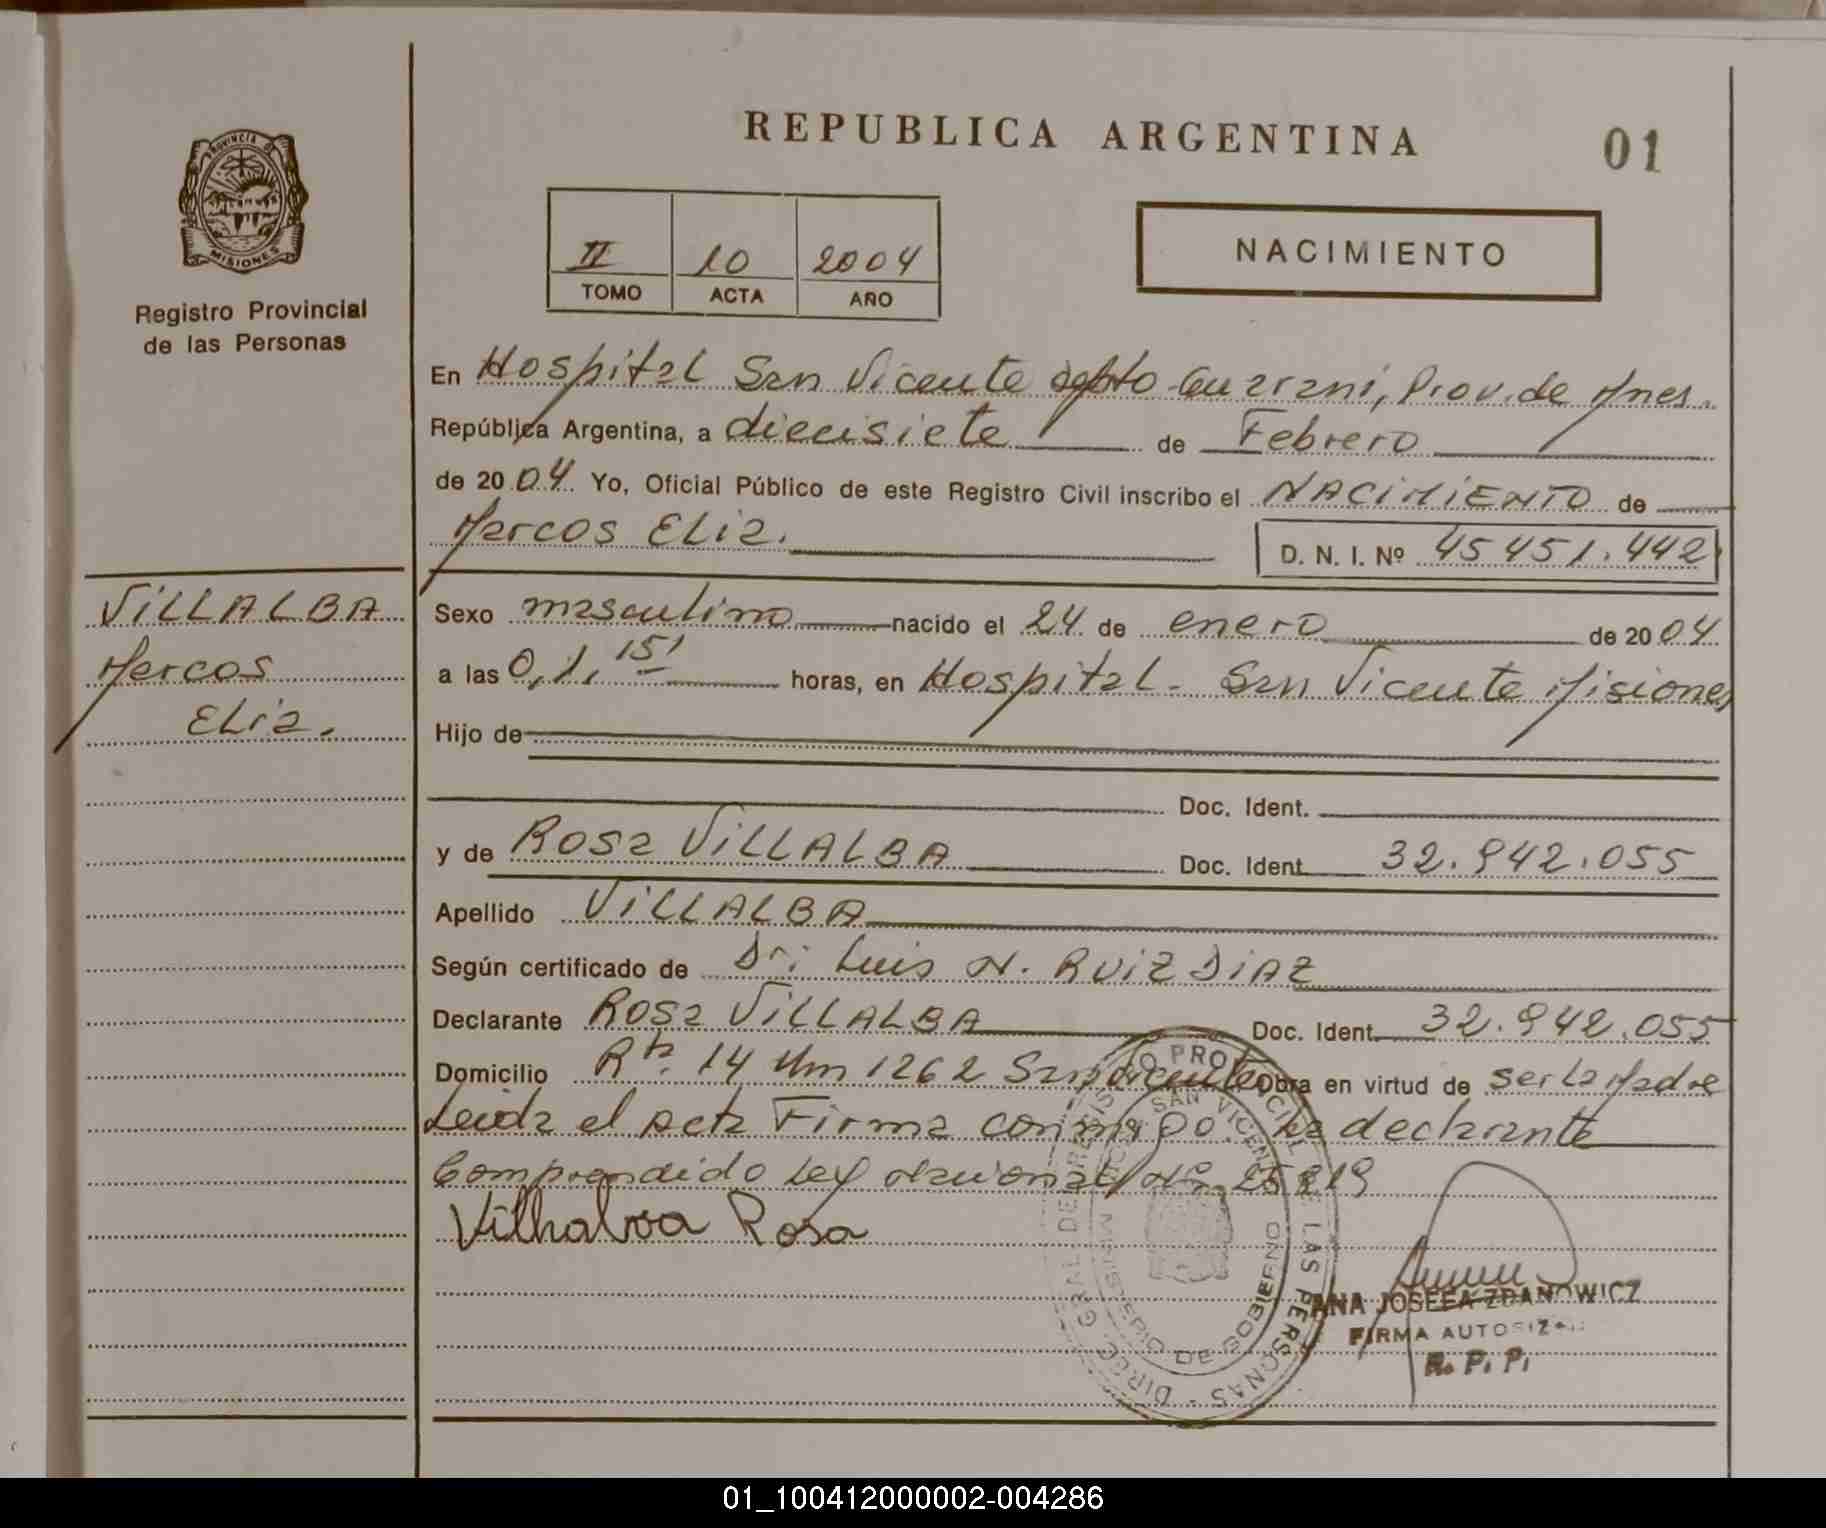 REPUBLICA ARGENTINA
01
PROVINCIA DE
MISIONES
Registro Provincial
de las Personas
II 10 2004
TOMO ACTA AÑO
NACIMIENTO
En Hospital San Vicente depto Guarani, Prov. de Mnes.
República Argentina, a diecisiete de Febrero
de 2004 Yo, Oficial Público de este Registro Civil inscribo el NACIMIENTO de
Marcos Elia.
D. N. I. Nº 45451.442
VILLALBA
Marcos
Elia.
Sexo masculino nacido el 24 de enero de 2004
a las 0,1,15' horas, en Hospital - San Vicente Misiones
Hijo de
Doc. Ident.
y de Rosa VILLALBA Doc. Ident. 32.942.055
Apellido VILLALBA
Según certificado de Dr: Luis N. RUIZ DIAZ
Declarante Rosa VILLALBA Doc. Ident. 32.942.055
Domicilio Rta. 14 Km 1262 San Vicente Obra en virtud de ser la Madre
Leida el acta Firma conmigo. La declarante
Comprendido Ley Nacional Nº 25819
Vilhalva Rosa
DIREC. GRAL. DEL REGISTRO PROVINCIAL DE LAS PERSONAS
SAN VICENTE
MINISTERIO DE GOBIERNO
ANA JOSEFA ZDANOWICZ
FIRMA AUTORIZADA
R. P. P.
01_100412000002-004286